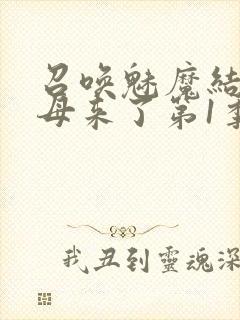 召唤魅魔結
母来了第1季
我丑到靈魂深